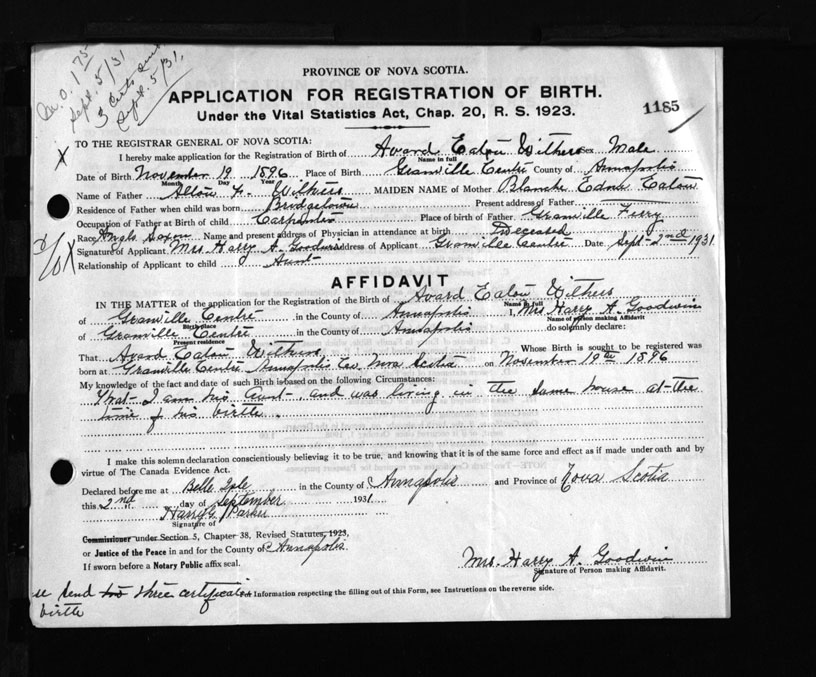 M.O. 1.75
Sept. 5/31
3 certs sent
Sept. 5/31.
PROVINCE OF NOVA SCOTIA.
APPLICATION FOR REGISTRATION OF BIRTH.
Under the Vital Statistics Act, Chap. 20, R. S. 1923.
1185
TO THE REGISTRAR GENERAL OF NOVA SCOTIA:
X I hereby make application for the Registration of Birth of Avard Eaton Withers Sex Male
Name in full
Date of Birth November 19 1896 Place of Birth Granville Centre County of Annapolis
Month Day Year
Name of Father Withers MAIDEN NAME of Mother Blanche Edna Eaton
Residence of Father when child was born Bridgetown Present address of Father
Occupation of Father at Birth of child Carpenter Place of birth of Father Granville Ferry
Race Anglo Saxon Name and present address of Physician in attendance at birth Deceased
X Signature of Applicant Mrs Harry A. Goodwin Address of Applicant Granville Centre Date Sept 2nd 1931
Relationship of Applicant to child Aunt
AFFIDAVIT
IN THE MATTER of the application for the Registration of the Birth of Avard Eaton Withers
Name in full
of Granville Centre in the County of Annapolis I, Mrs Harry A. Goodwin
Birth place Name of Person making Affidavit
of Granville Centre in the County of Annapolis do solemnly declare:
Present residence
That Avard Eaton Withers Whose Birth is sought to be registered was
born at Granville Centre Annapolis Co Nova Scotia on November 19th 1896
My knowledge of the fact and date of such Birth is based on the following Circumstances:
That I am his aunt and was living in the same house at the
time of his birth.
I make this solemn declaration conscientiously believing it to be true, and knowing that it is of the same force and effect as if made under oath and by
virtue of The Canada Evidence Act.
Declared before me at Belle Isle in the County of Annapolis and Province of Nova Scotia
this 2nd day of September 1931
Harry G. Parker
Signature of
Commissioner under Section 5, Chapter 38, Revised Statutes, 1923,
or Justice of the Peace in and for the County of Annapolis.
If sworn before a Notary Public affix seal.
Mrs. Harry A. Goodwin
Signature of Person making Affidavit.
send two three certificates Information respecting the filling out of this Form, see Instructions on the reverse side.
birth